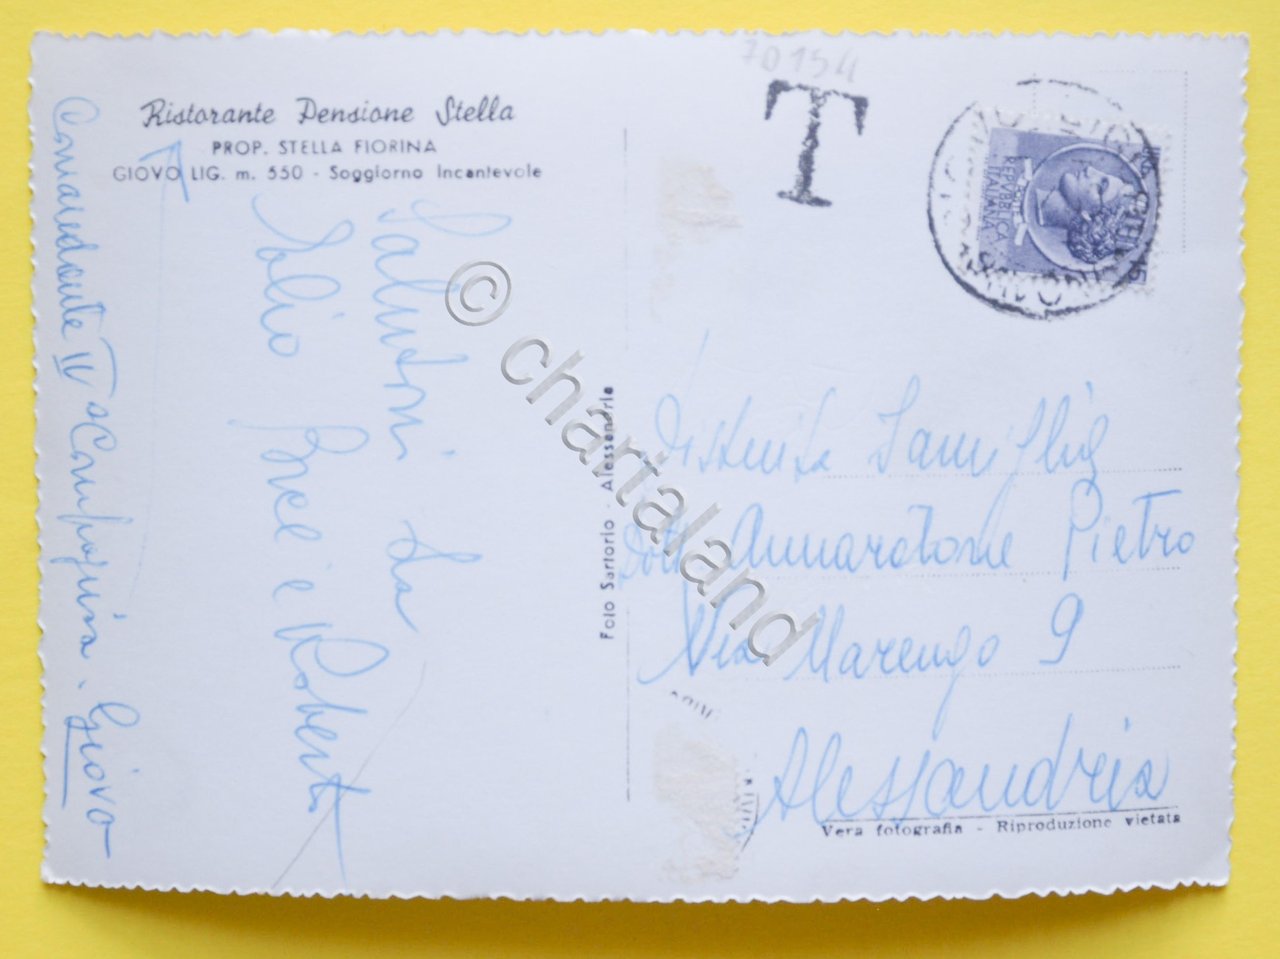 Ristorante Pensione Stella
PROP. STELLA FIORINA
GIOVO LIG. m. 550 - Soggiorno Incantevole
Salutoni da
Bice e Roberto
Comandante IIª Compagnia - Giovo
Foto Sartorio - Alessandria
70154
T
POSTE
REPVBBLICA
ITALIANA
Distinta Famiglia
Dott. Annaratone Pietro
Via Marengo 9
Alessandria
Vera fotografia - Riproduzione vietata
© chartaland